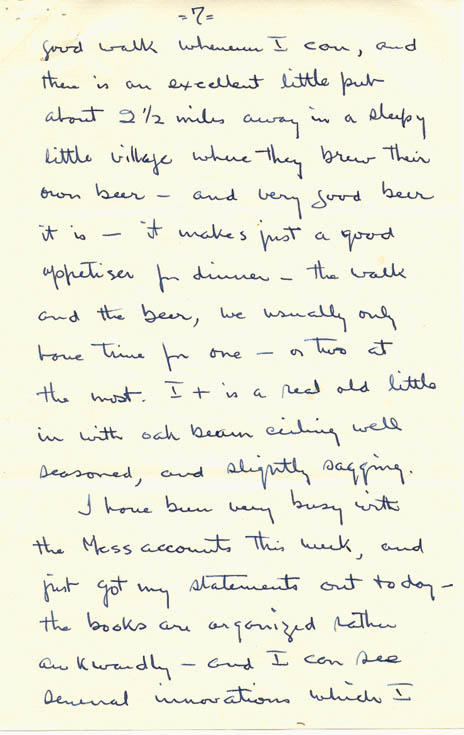 =7=
good walk whenever I can, and
there is an excellent little pub
about 2 1/2 miles away in a sleepy
little village where they brew their
own beer - and very good beer
it is - it makes just a good
appetiser for dinner - the walk
and the beer, we usually only
have time for one - or two at
the most. It is a real old little
in with oak beam ceiling well
seasoned, and slightly sagging.
I have been very busy with
the Mess accounts this week, and
just got my statements out today -
the books are organized rather
awkwardly - and I can see
several innovations which I